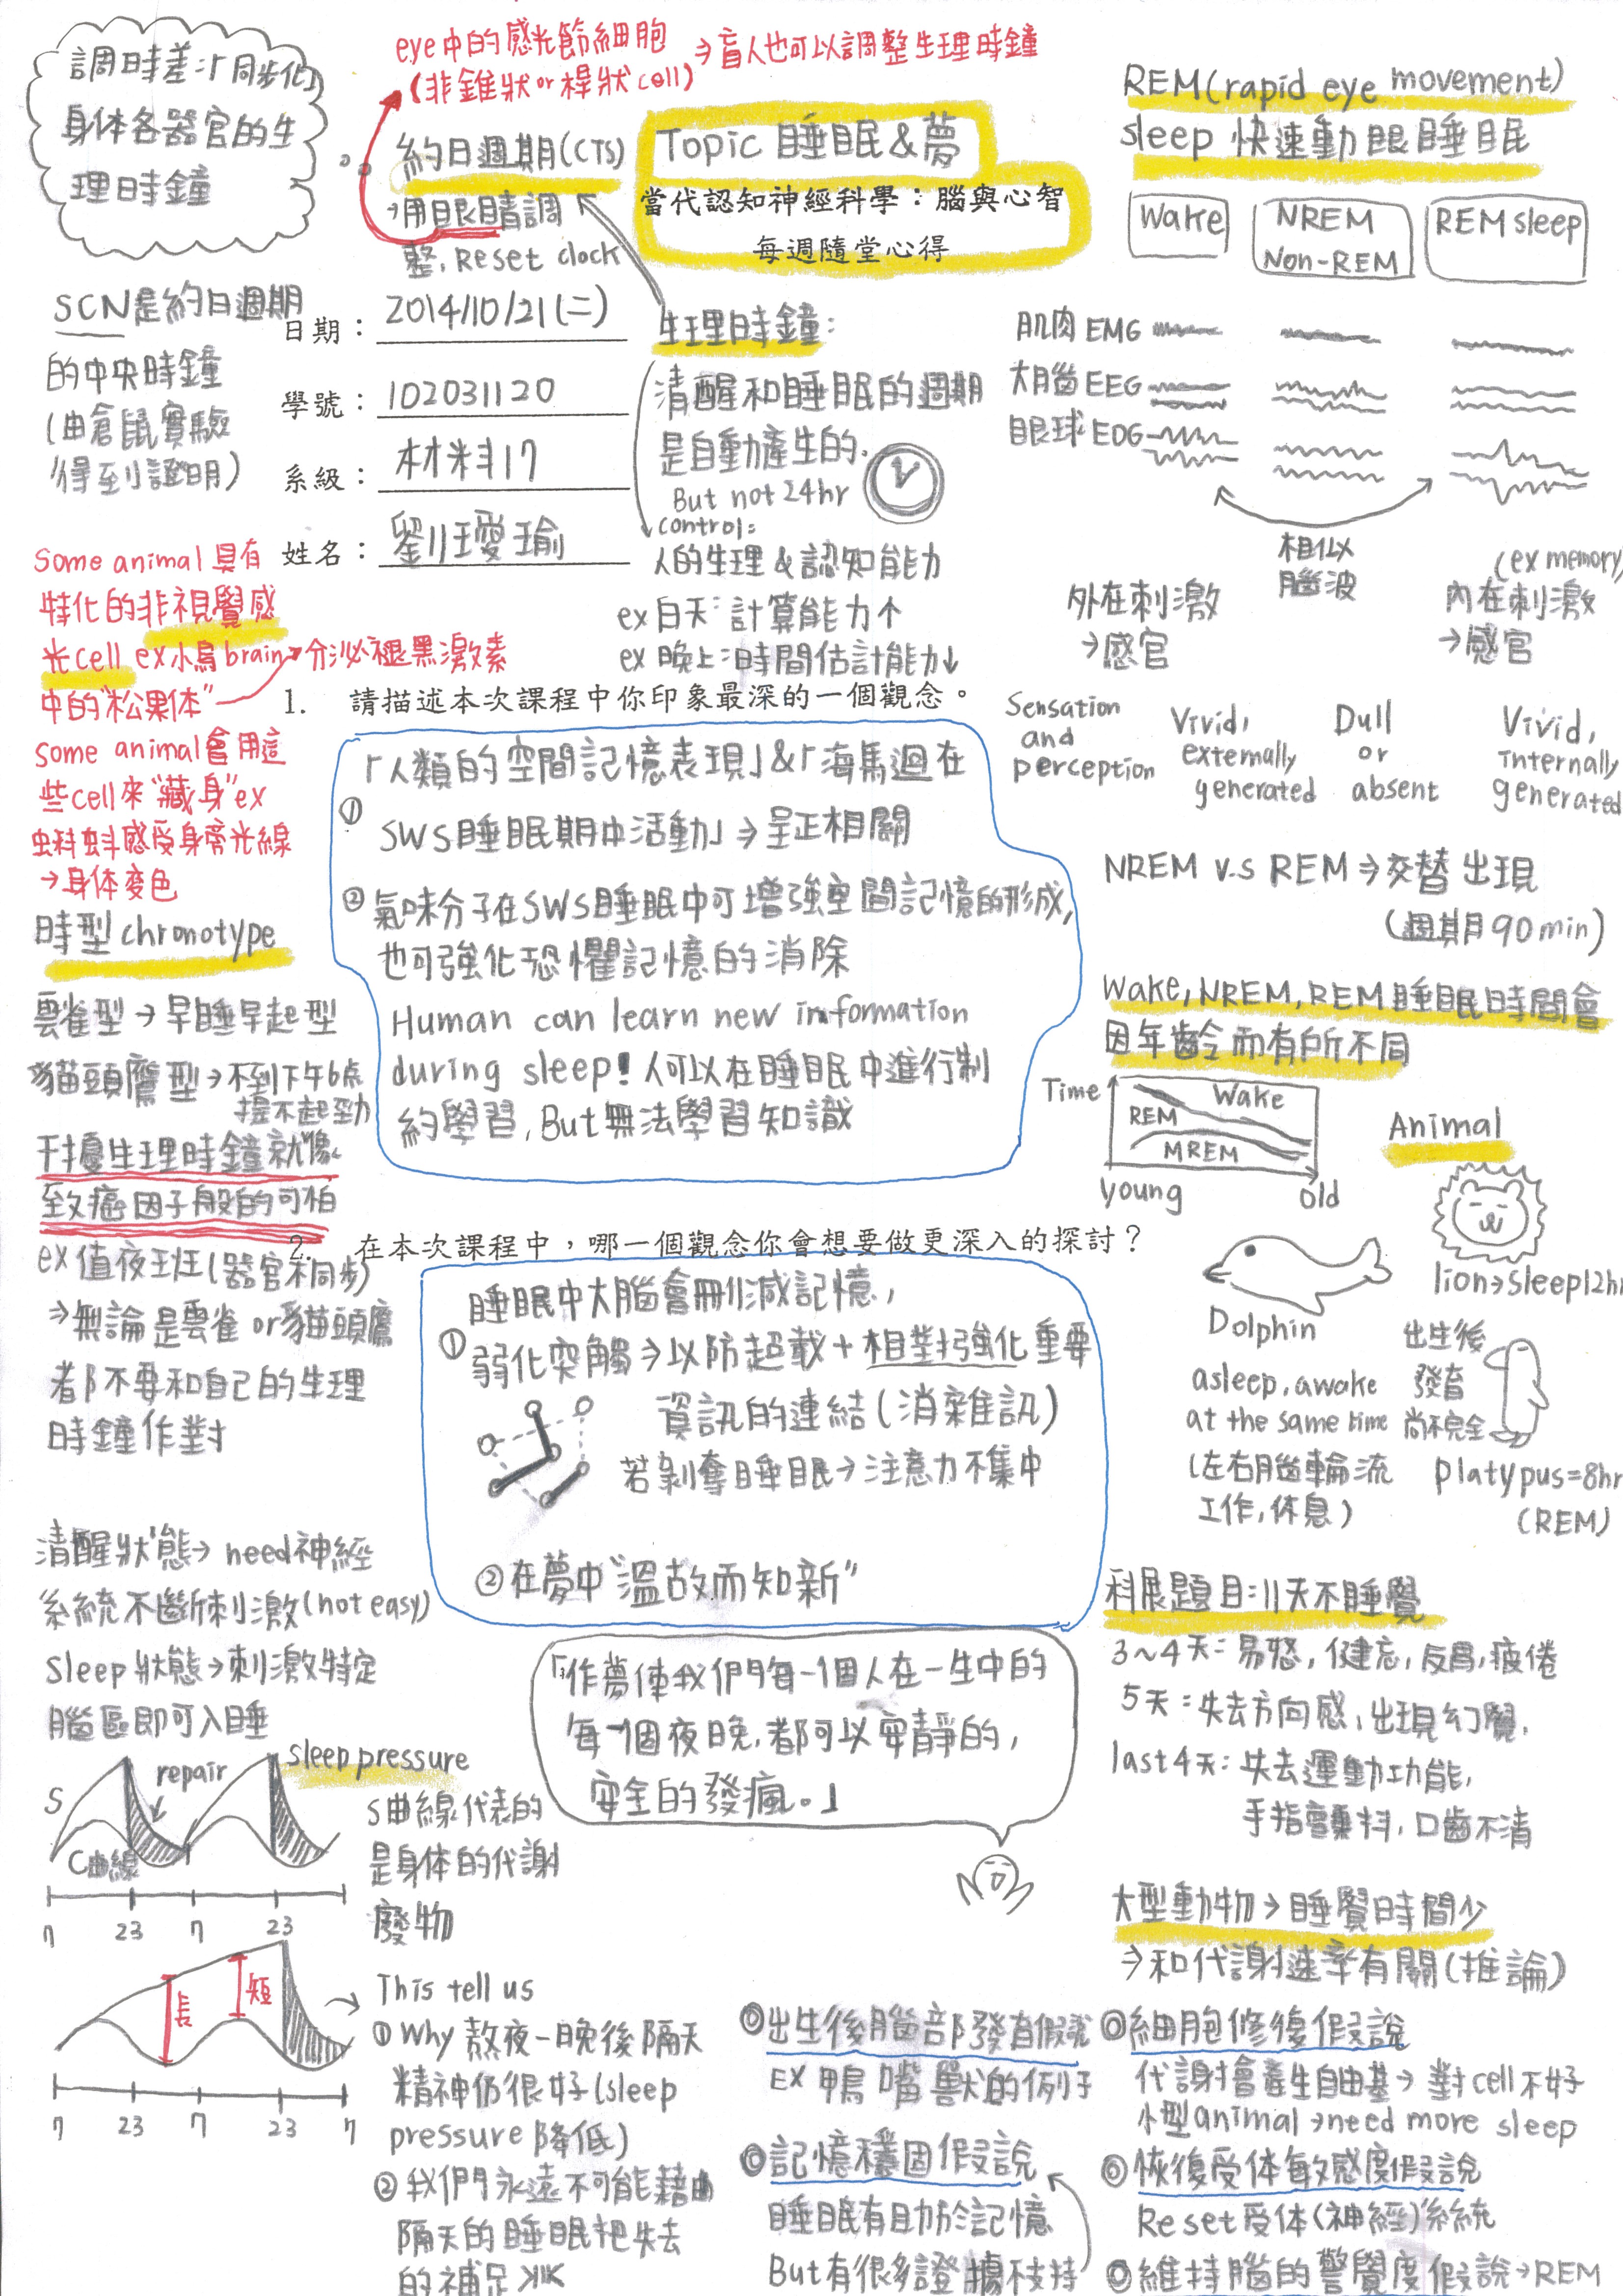 調時差:「同步化」
身体各器官的生
理時鐘
eye中的感光節細胞
(非錐狀or桿狀cell)
→盲人也可以調整生理時鐘
約日週期(CTS)
→用眼睛調
整, Reset clock
Topic 睡眠&夢
當代認知神經科學：腦與心智
每週隨堂心得
SCN是約日週期
的中央時鐘
(由倉鼠實驗
得到證明)
日期： 2014/10/21(二)
學號： 102031120
系級： 材料17
姓名： 劉璦瑜
生理時鐘:
清醒和睡眠的週期
是自動產生的.
But not 24hr
control:
人的生理&認知能力
ex 白天:計算能力↑
ex 晚上:時間估計能力↓
Some animal 具有
特化的非視覺感
光cell ex小鳥brain
中的"松果体"
分泌褪黑激素
Some animal會用這
些cell來"藏身"ex
蝌蚪感受身旁光線
→身体變色
時型 chronotype
雲雀型→早睡早起型
貓頭鷹型→不到下午6点
提不起勁
干擾生理時鐘就像
致癌因子般的可怕
ex 值夜班(器官不同步)
⇒無論是雲雀or貓頭鷹
都不要和自己的生理
時鐘作對
清醒狀態→need神經
系統不斷刺激(not easy)
Sleep狀態→刺激特定
腦區即可入睡
1. 請描述本次課程中你印象最深的一個觀念。
①「人類的空間記憶表現」&「海馬迴在
SWS睡眠期中活動」⇒呈正相關
②氣味分子在SWS睡眠中可增強空間記憶的形成,
也可強化恐懼記憶的消除
Human can learn new information
during sleep! 人可以在睡眠中進行制
約學習, But無法學習知識
2. 在本次課程中，哪一個觀念你會想要做更深入的探討？
睡眠中大腦會刪減記憶,
①弱化突觸⇒以防超載+相對強化重要
資訊的連結(消雜訊)
若剝奪睡眠→注意力不集中
②在夢中"溫故而知新"
「作夢使我們每一個人在一生中的
每一個夜晚,都可以安靜的,
安全的發瘋。」
S
repair
sleep pressure
C曲線
7 23 7 23
S曲線代表的
是身体的代謝
廢物
長
短
7 23 7 23 7
This tell us
①Why 熬夜一晚後隔天
精神仍很好(sleep
pressure降低)
②我們永遠不可能藉由
隔天的睡眠把失去
的補足
REM(rapid eye movement)
sleep 快速動眼睡眠
Wake
NREM
Non-REM
REM sleep
肌肉EMG
大腦EEG
眼球EOG
相似
腦波
外在刺激
→感官
(ex memory)
內在刺激
→感官
Sensation
and
perception
Vivid,
externally
generated
Dull
or
absent
Vivid,
internally
generated
NREM v.s REM⇒交替出現
(週期90min)
Wake, NREM, REM睡眠時間會
因年齡而有所不同
Time
Wake
REM
MREM
young
old
Animal
lion→sleep12hr
Dolphin
asleep, awake
at the same time
(左右腦輪流
工作,休息)
出生後
發育
尚不完全
platypus=8hr
(REM)
科展題目:11天不睡覺
3~4天:易怒,健忘,反胃,疲倦
5天:失去方向感,出現幻覺,
last4天:失去運動功能,
手指顫抖,口齒不清
大型動物→睡覺時間少
⇒和代謝速率有關(推論)
◎出生後腦部發育假說
EX 鴨嘴獸的例子
◎記憶穩固假說
睡眠有助於記憶
But有很多證據不支持
◎細胞修復假說
代謝會產生自由基→對cell不好
小型animal→need more sleep
◎恢復受体敏感度假說
Reset受体(神經)系統
◎維持腦的警覺度假說→REM